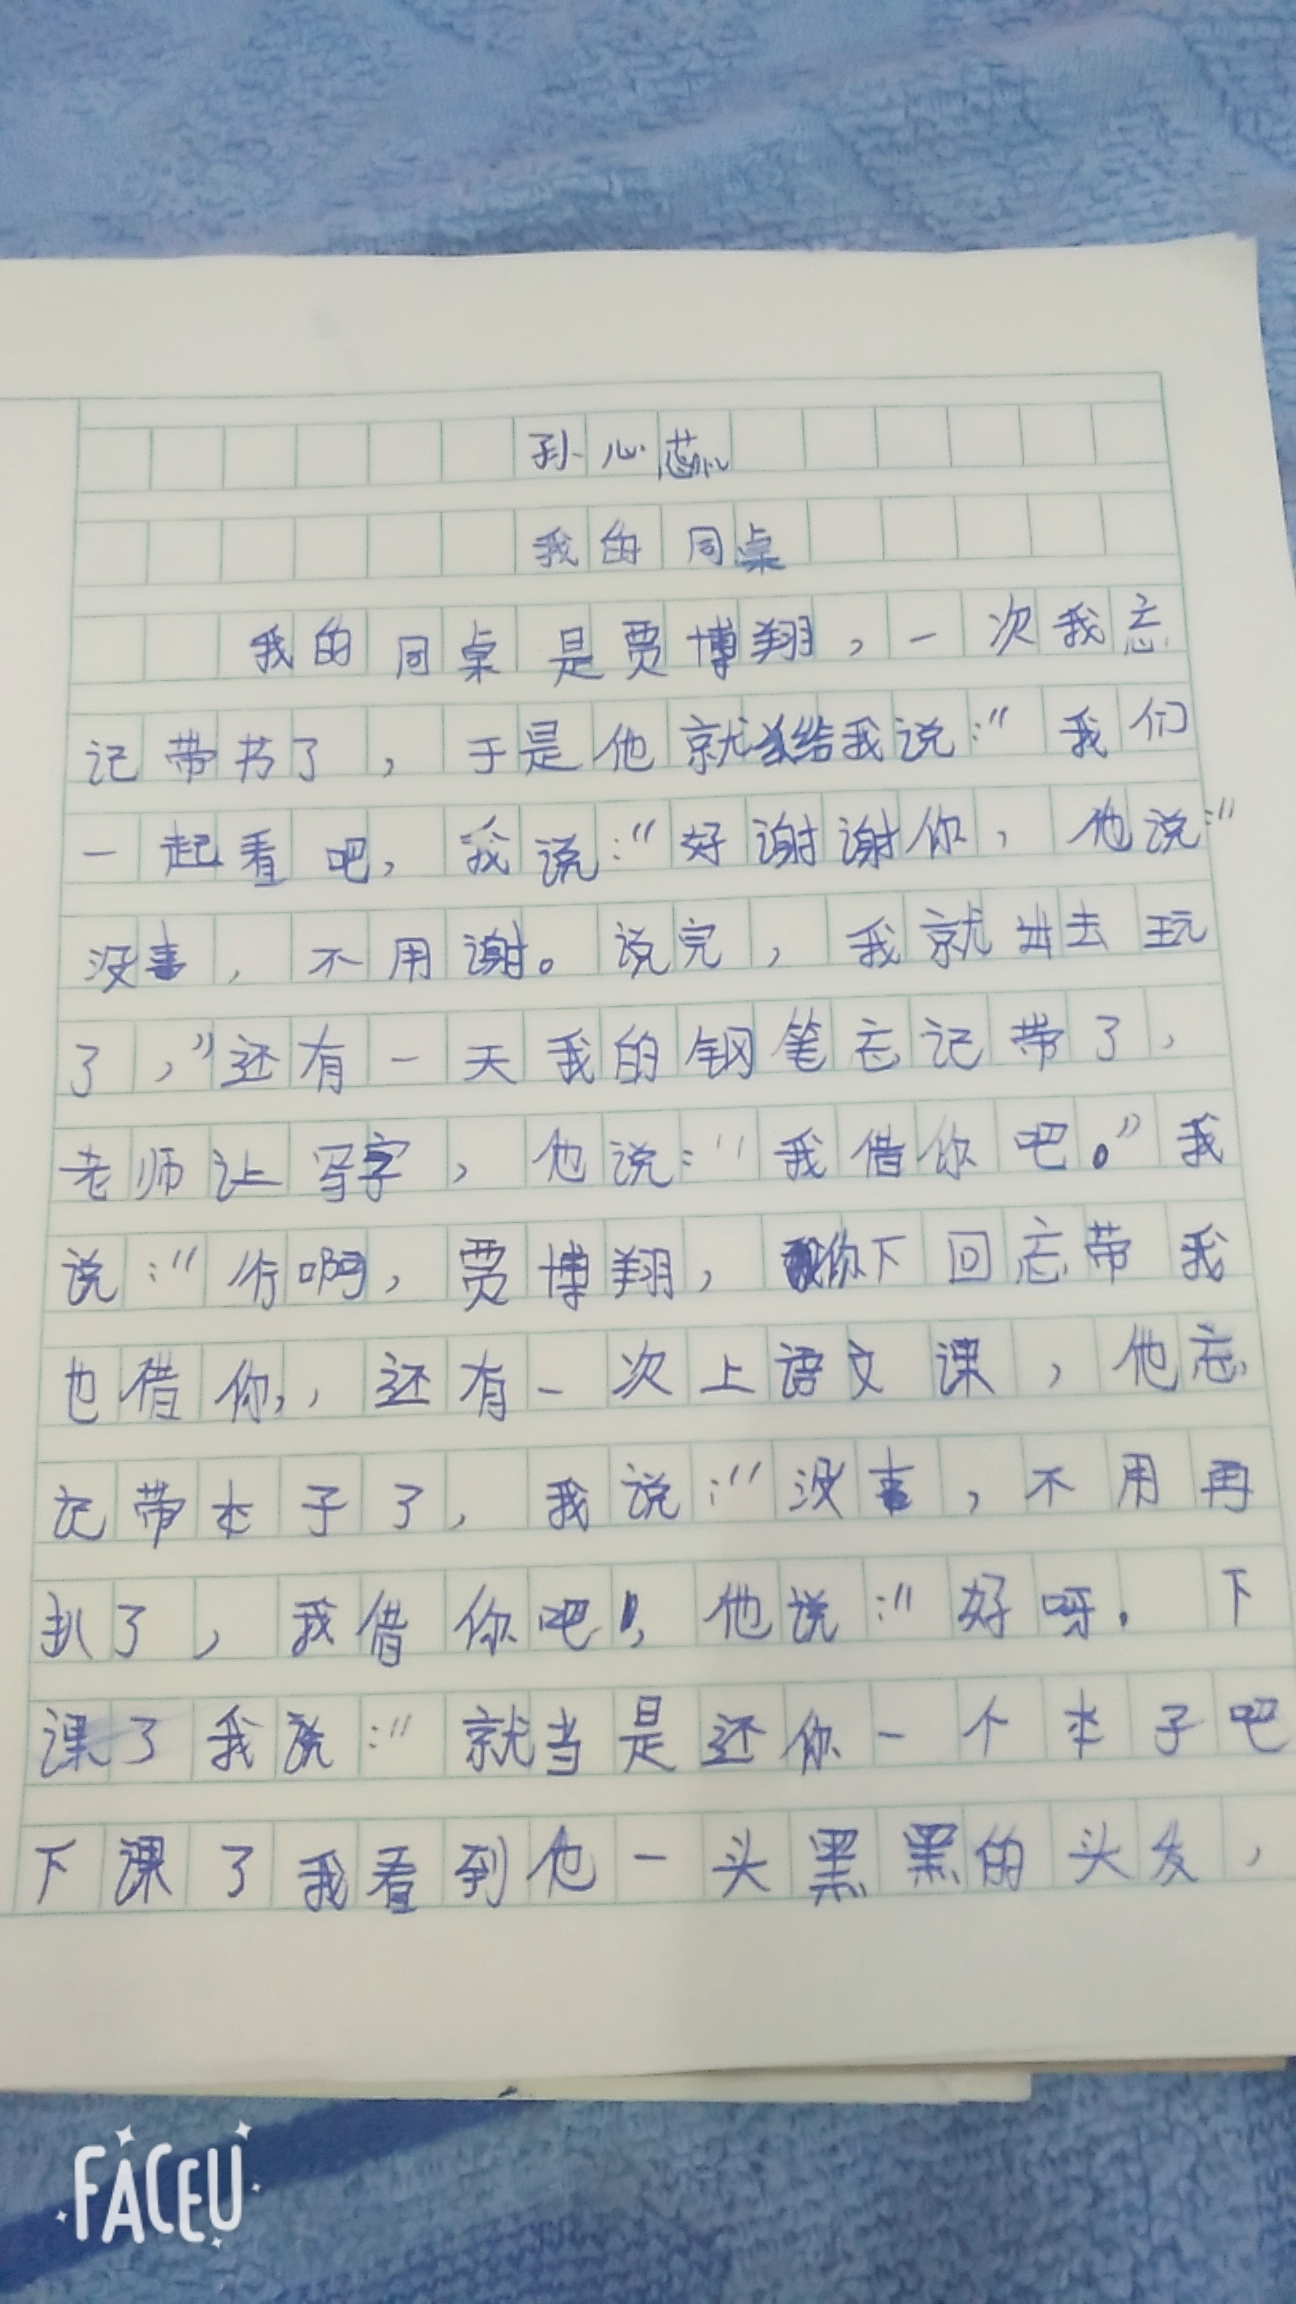 孙心蕊
我的同桌
我的同桌是贾博翔，一次我忘
记带书了，于是他就给我说：“我们
一起看吧，我说：“好谢谢你，他说：“
没事，不用谢。说完，我就出去玩
了，”还有一天我的钢笔忘记带了，
老师让写字，他说：“我借你吧。”我
说：“行啊，贾博翔，你下回忘带我
也借你，，还有一次上语文课，他忘
记带本子了，我说：“没事，不用再
扒了，我借你吧！，他说：“好呀。下
课了我说：“就当是还你一个本子吧
下课了我看到他一头黑黑的头发，
FACEU